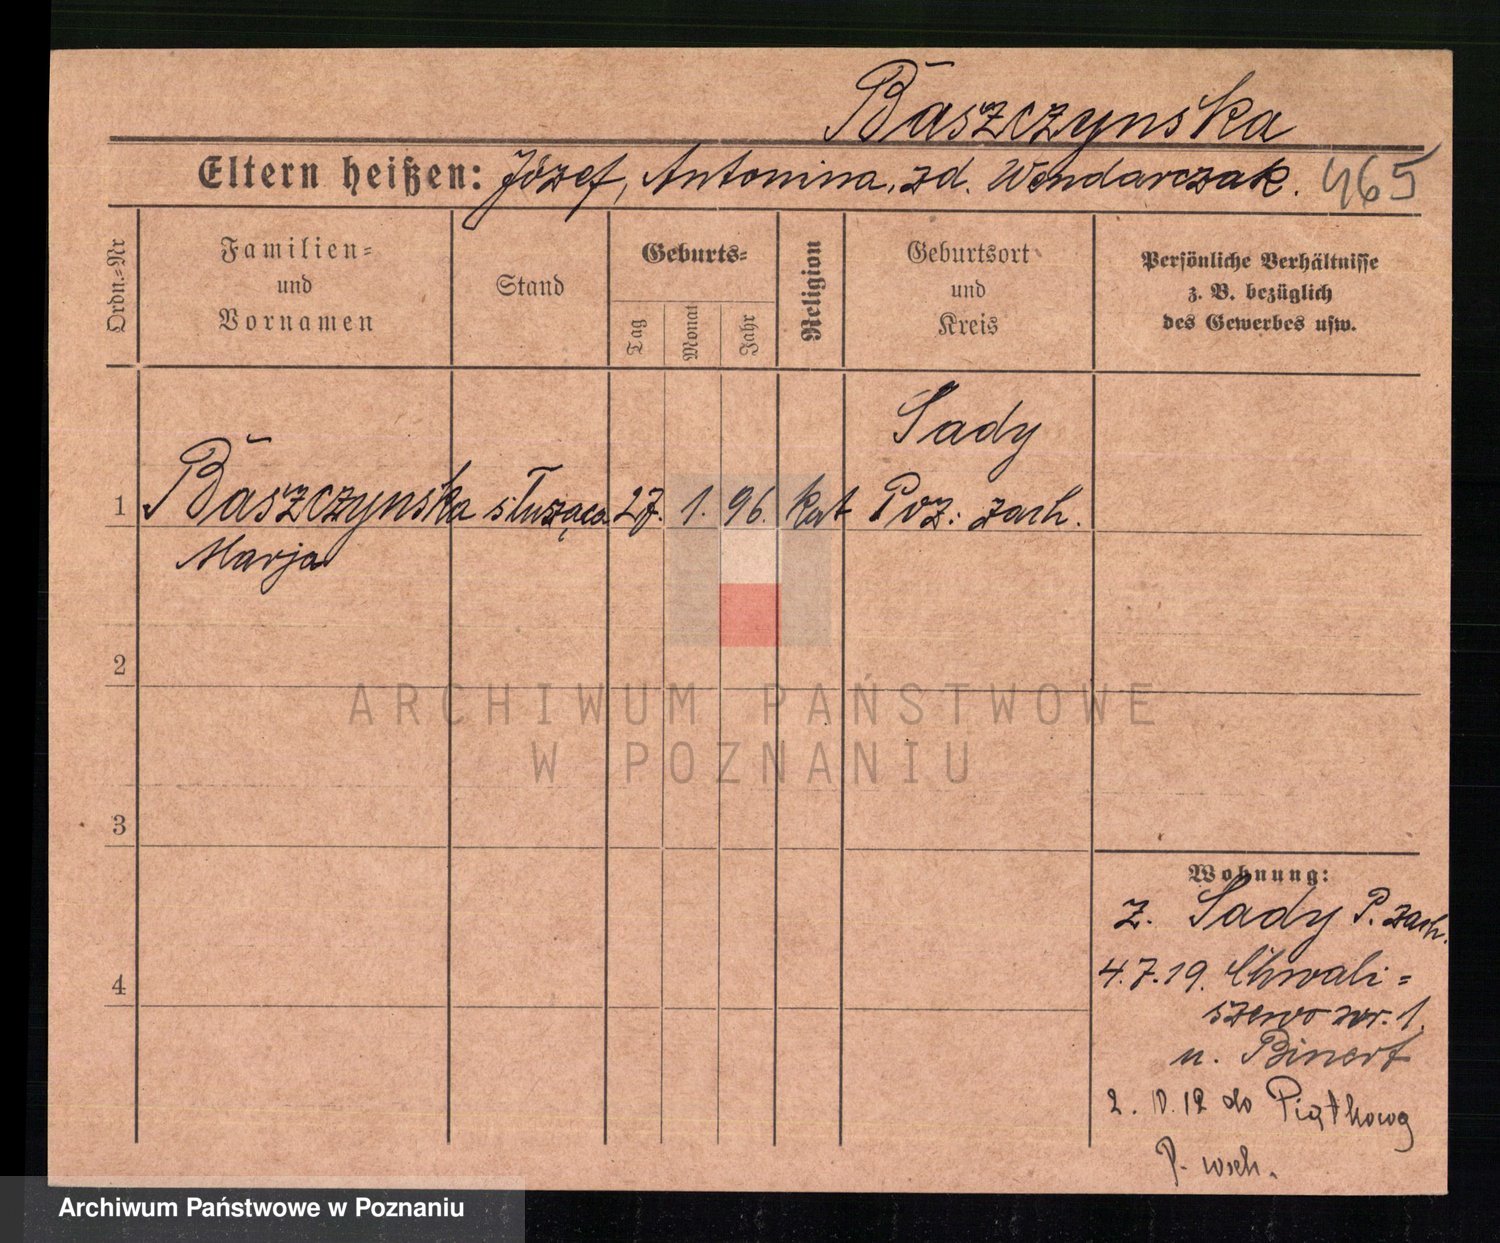 Baszczynska
Eltern heißen: Józef, Antonina, zd. Wendarczak. 465
Ordn.=Nr
Familien=
und
Vornamen
Stand
Geburts=
Tag
Monat
Jahr
Religion
Geburtsort
und
Kreis
Persönliche Verhältnisse
z. B. bezüglich
des Gewerbes usw.
Sady
1 Baszczynska służąca 27. 1. 96. kat Poz. zach.
Marja
2
3
4
Wohnung:
z. Sady P. zach.
4.7.19. Chwali=
szewo nr. 1.
u. Binert
2. 10. 19 do Piątkowa
P. wsch.
ARCHIWUM PAŃSTWOWE
W POZNANIU
Archiwum Państwowe w Poznaniu